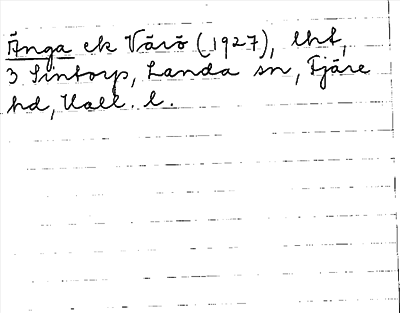 Änga ek Värö (1927), lht,
3 Sintorp, Landa sn, Fjäre
hd, Hall. l.